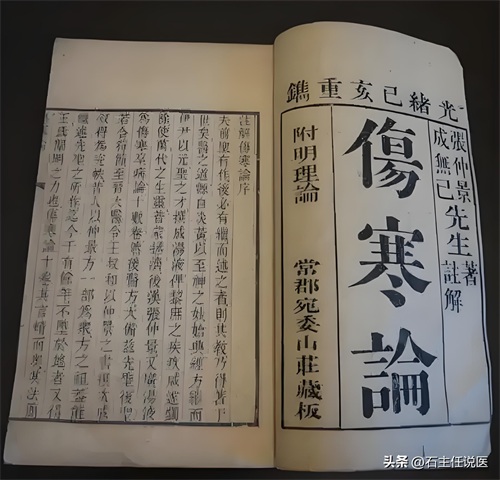 光緒己亥重鐫
張仲景先生著
成無己註解
傷寒論
附明理論
常郡宛委山莊藏板
註解傷寒論序
夫前聖有作後必有繼而述之者則其教乃得著于
世矣醫之道源自炎黃以至神之妙始興經方繼而
伊尹以元聖之才撰成湯液俾黎庶之疾疢咸蠲
除使萬代之生靈普蒙拯濟後漢張仲景又廣湯液
為傷寒卒病論十數卷然後醫方大備茲先聖後聖
若合符節至晉太醫令王叔和以仲景之書撰次成
敘得為完帙昔人以仲景方一部為眾方之祖蓋能
繼述先聖之所作迄今千有餘年不墜於地者又得
王氏闡明之力也傷寒論十卷其言精而奧其法簡
头条 @石主任说医